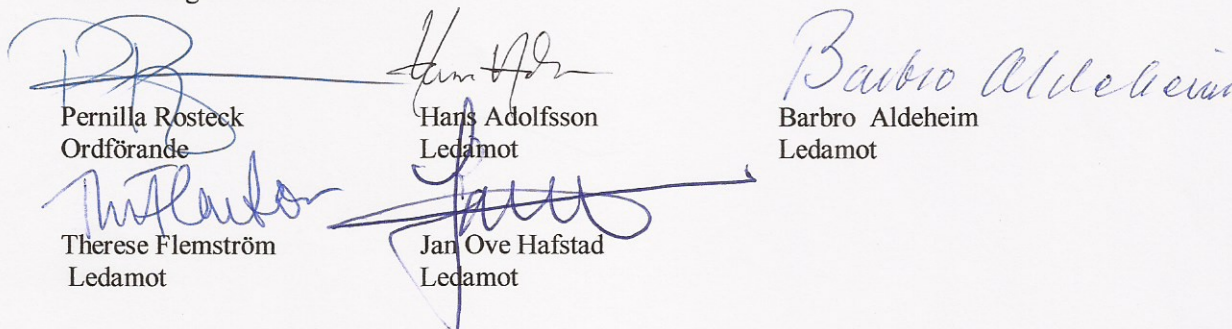 Pernilla Rosteck
Ordförande
Hans Adolfsson
Ledamot
Barbro Aldeheim
Barbro Aldeheim
Ledamot
Therese Flemström
Ledamot
Jan Ove Hafstad
Ledamot